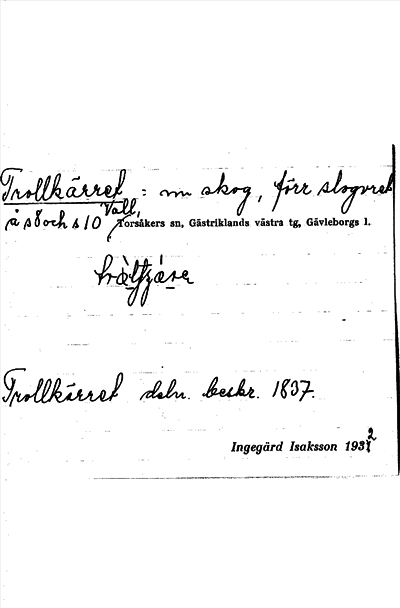 Trollkärret : nu skog, förr slogvret
å s8 och s10 Vall, Torsåkers sn, Gästriklands västra tg, Gävleborgs l.
Trollkärret dsbn. beskr. 1837.
Ingegärd Isaksson 1932